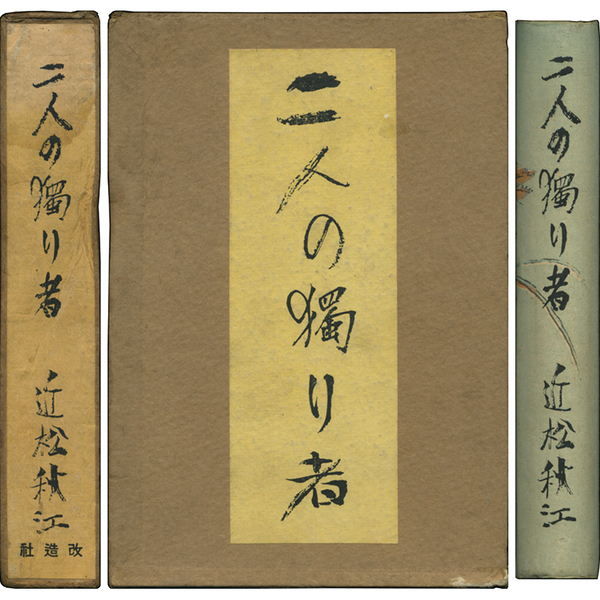 二人の獨り者 近松秋江
社造改
二人の獨り者
二人の獨り者 近松秋江